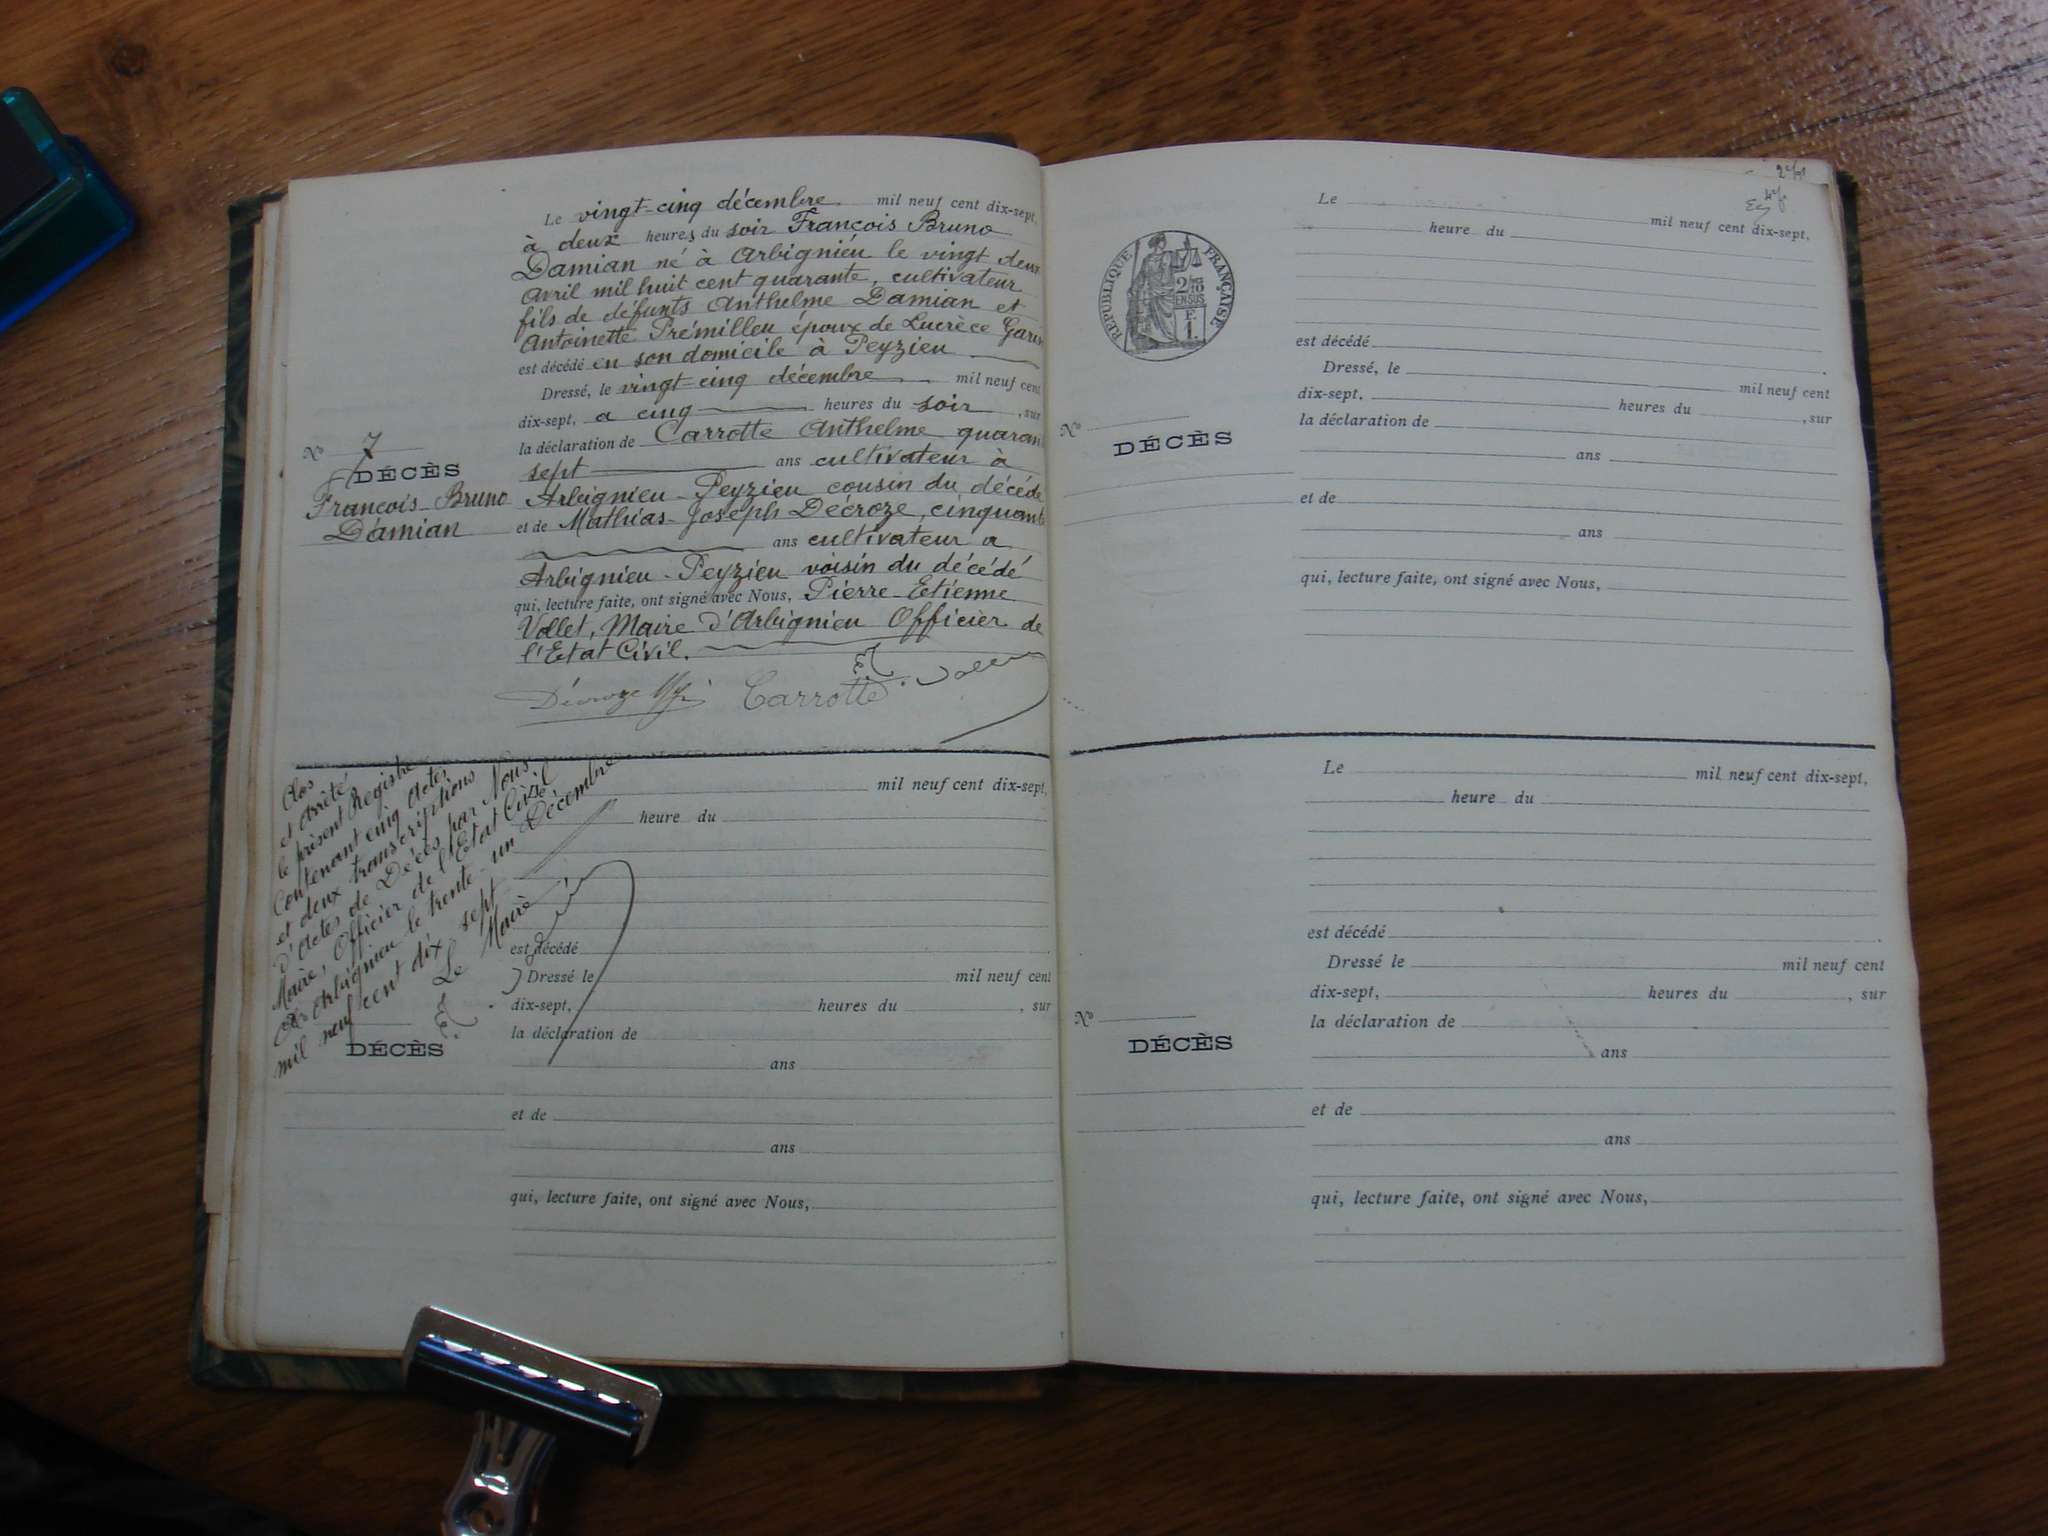 Le vingt-cinq décembre mil neuf cent dix-sept,
à deux heures du soir François Bruno
Damian né à Arbignieu le vingt deux
Avril mil huit cent quarante, cultivateur
fils de défunts Anthelme Damian et
Antoinette Prémilleu époux de Lucrèce Garin
est décédé en son domicile à Peyzieu
Dressé, le vingt-cinq décembre mil neuf cent
dix-sept, a cinq heures du soir, sur
la déclaration de Carrotte Anthelme quarante
sept ans cultivateur à
Arbignieu-Peyzieu cousin du décédé
et de Mathias-Joseph Décroze, cinquante
ans cultivateur a
Arbignieu-Peyzieu voisin du décédé
qui, lecture faite, ont signé avec Nous, Pierre-Etienne
Vollet, Maire d'Arbignieu Officier de
l'Etat Civil.
Décroze Carrotte
No 7
DÉCÈS
François-Bruno
Damian
Clos
et Arrêté
le présent Registre
Contenant cinq Actes
et deux transcriptions
d'Actes de Décès par Nous
Maire, Officier de l'Etat Civil
Arbignieu le trente-un Décembre
mil neuf cent dix sept
Le Maire
mil neuf cent dix-sept,
heure du
est décédé
Dressé le mil neuf cent
dix-sept, heures du , sur
la déclaration de
ans
et de
ans
qui, lecture faite, ont signé avec Nous,
DÉCÈS
RÉPUBLIQUE FRANÇAISE
2/10
EN SUS
F.
1
Le mil neuf cent dix-sept,
heure du
est décédé
Dressé, le mil neuf cent
dix-sept, heures du , sur
la déclaration de
ans
et de
ans
qui, lecture faite, ont signé avec Nous,
No
DÉCÈS
Le mil neuf cent dix-sept,
heure du
est décédé
Dressé le mil neuf cent
dix-sept, heures du , sur
la déclaration de
ans
et de
ans
qui, lecture faite, ont signé avec Nous,
No
DÉCÈS